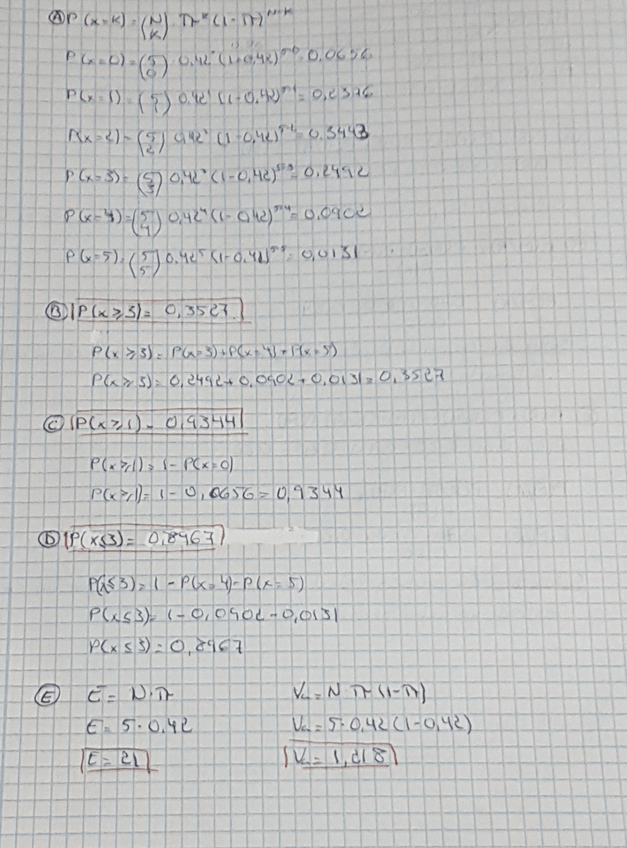 Ⓐ P(x=k) = (N k) π^k (1-π)^N-k
P(x=0) = (5 0) · 0,42^0 (1-0,42)^5-0 = 0,0656
P(x=1) = (5 1) 0,42^1 (1-0,42)^5-1 = 0,2376
P(x=2) = (5 2) 0,42^2 (1-0,42)^5-2 = 0,3443
P(x=3) = (5 3) 0,42^3 (1-0,42)^5-3 = 0,2492
P(x=4) = (5 4) 0,42^4 (1-0,42)^5-4 = 0,0902
P(x=5) = (5 5) 0,42^5 (1-0,42)^5-5 = 0,0131
Ⓑ P(x≥3) = 0,3527
P(x≥3) = P(x=3)+P(x=4)+P(x=5)
P(x≥3) = 0,2492+0,0902+0,0131 = 0,3527
Ⓒ P(x≥1) = 0,9344
P(x≥1) = 1-P(x=0)
P(x≥1) = 1-0,0656 = 0,9344
Ⓓ P(x≤3) = 0,8967
P(x≤3) = 1-P(x=4)-P(x=5)
P(x≤3) = 1-0,0902-0,0131
P(x≤3) = 0,8967
Ⓔ E = N·π
E = 5·0,42
E = 21
= N π (1-π)
= 5·0,42 (1-0,42)
= 1,218